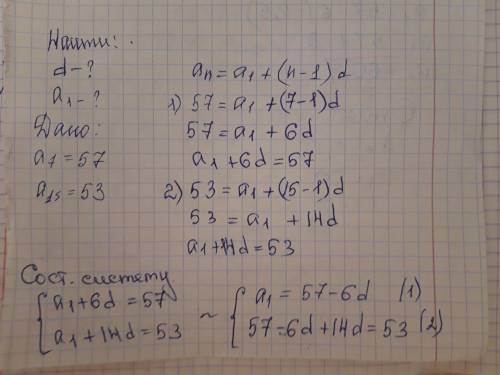 Найти:
d-?
a₁-?
Дано:
a₇=57
a₁₅=53
aₙ=a₁+(n-1)d
1) 57=a₁+(7-1)d
57=a₁+6d
a₁+6d=57
2) 53=a₁+(15-1)d
53=a₁+14d
a₁+14d=53
Сост. систему
{a₁+6d=57 ~ {a₁=57-6d (1)
a₁+14d=53 57=6d+14d=53 (2)